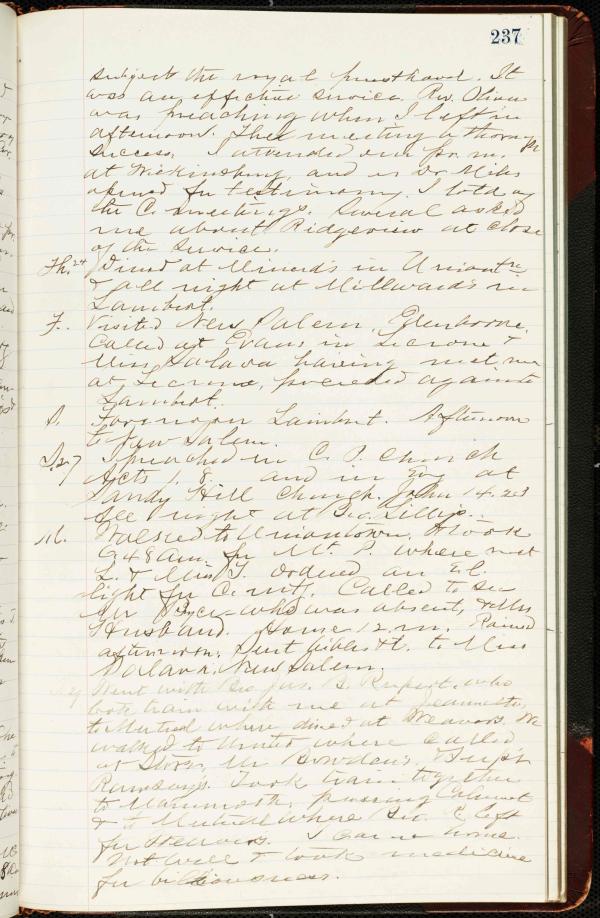 237
subject the royal priesthood. It
was an effective service. Rev. Oliver
was preaching when I left in
afternoon. The meeting a thorough
success. I attended our pr. m.
at Wilkinsburg, and as Dr. Miles
opened for testimony I told of
the C. meetings. Several asked
me about Ridgeview at close
of the service.
Th. 24 Dined at Minerd's in Uniontn
& all night at Millward's in
Lambert.
F. Visited New Salem, Edenborne,
called at Evans in Lecrone &
Miss Salava having met me
at Lecrone, proceeded again to
Lambert.
S. Forenoon Lambert. Afternoon
to New Salem.
S. 27 I preached in C. P. Church
Acts 1.8 and in Eng at
Sandy Hill Church. John 14. 23
All night at
M. Walked to Uniontown, & took
9 48 am. for Mt. P. where met
L. & Miss Y. Ordered an El.
light for C. mt. Called to see
Mr who was absent, & Mrs
Husband. Home 12. m. Rained
afternoon. Sent bibles &t. to Miss
Salava, New Salem.
Went with Bro Jas. B. Rupert, who
took train with me at Jeannette,
to Mutual where dined at Weavers. We
walked to United where called
at Store, Mr Bowden's, & Sup't
Ramsay's. Took train together
to Mammoth, passing Calumet
& to Mutual where Bro. R left
for Weavers. I came home.
Not well & took medicine
for billiousness.